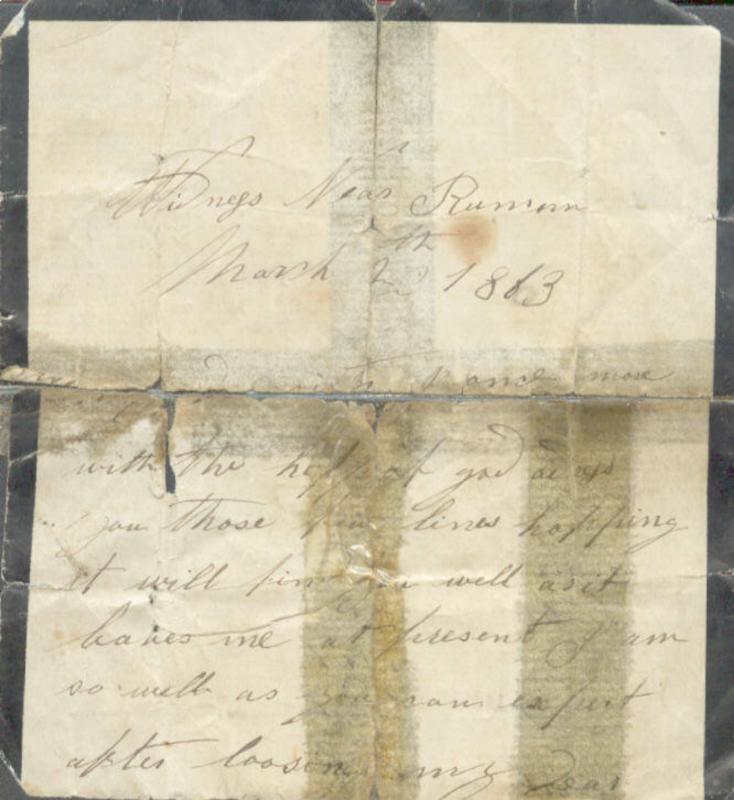 Widnes Near Runcorn
March 2th 1863
sister once more
with the help of god
you those few lines hopping
it will find you well as it
leaves me at present I am
so well as you can expect
after loosing my Dear